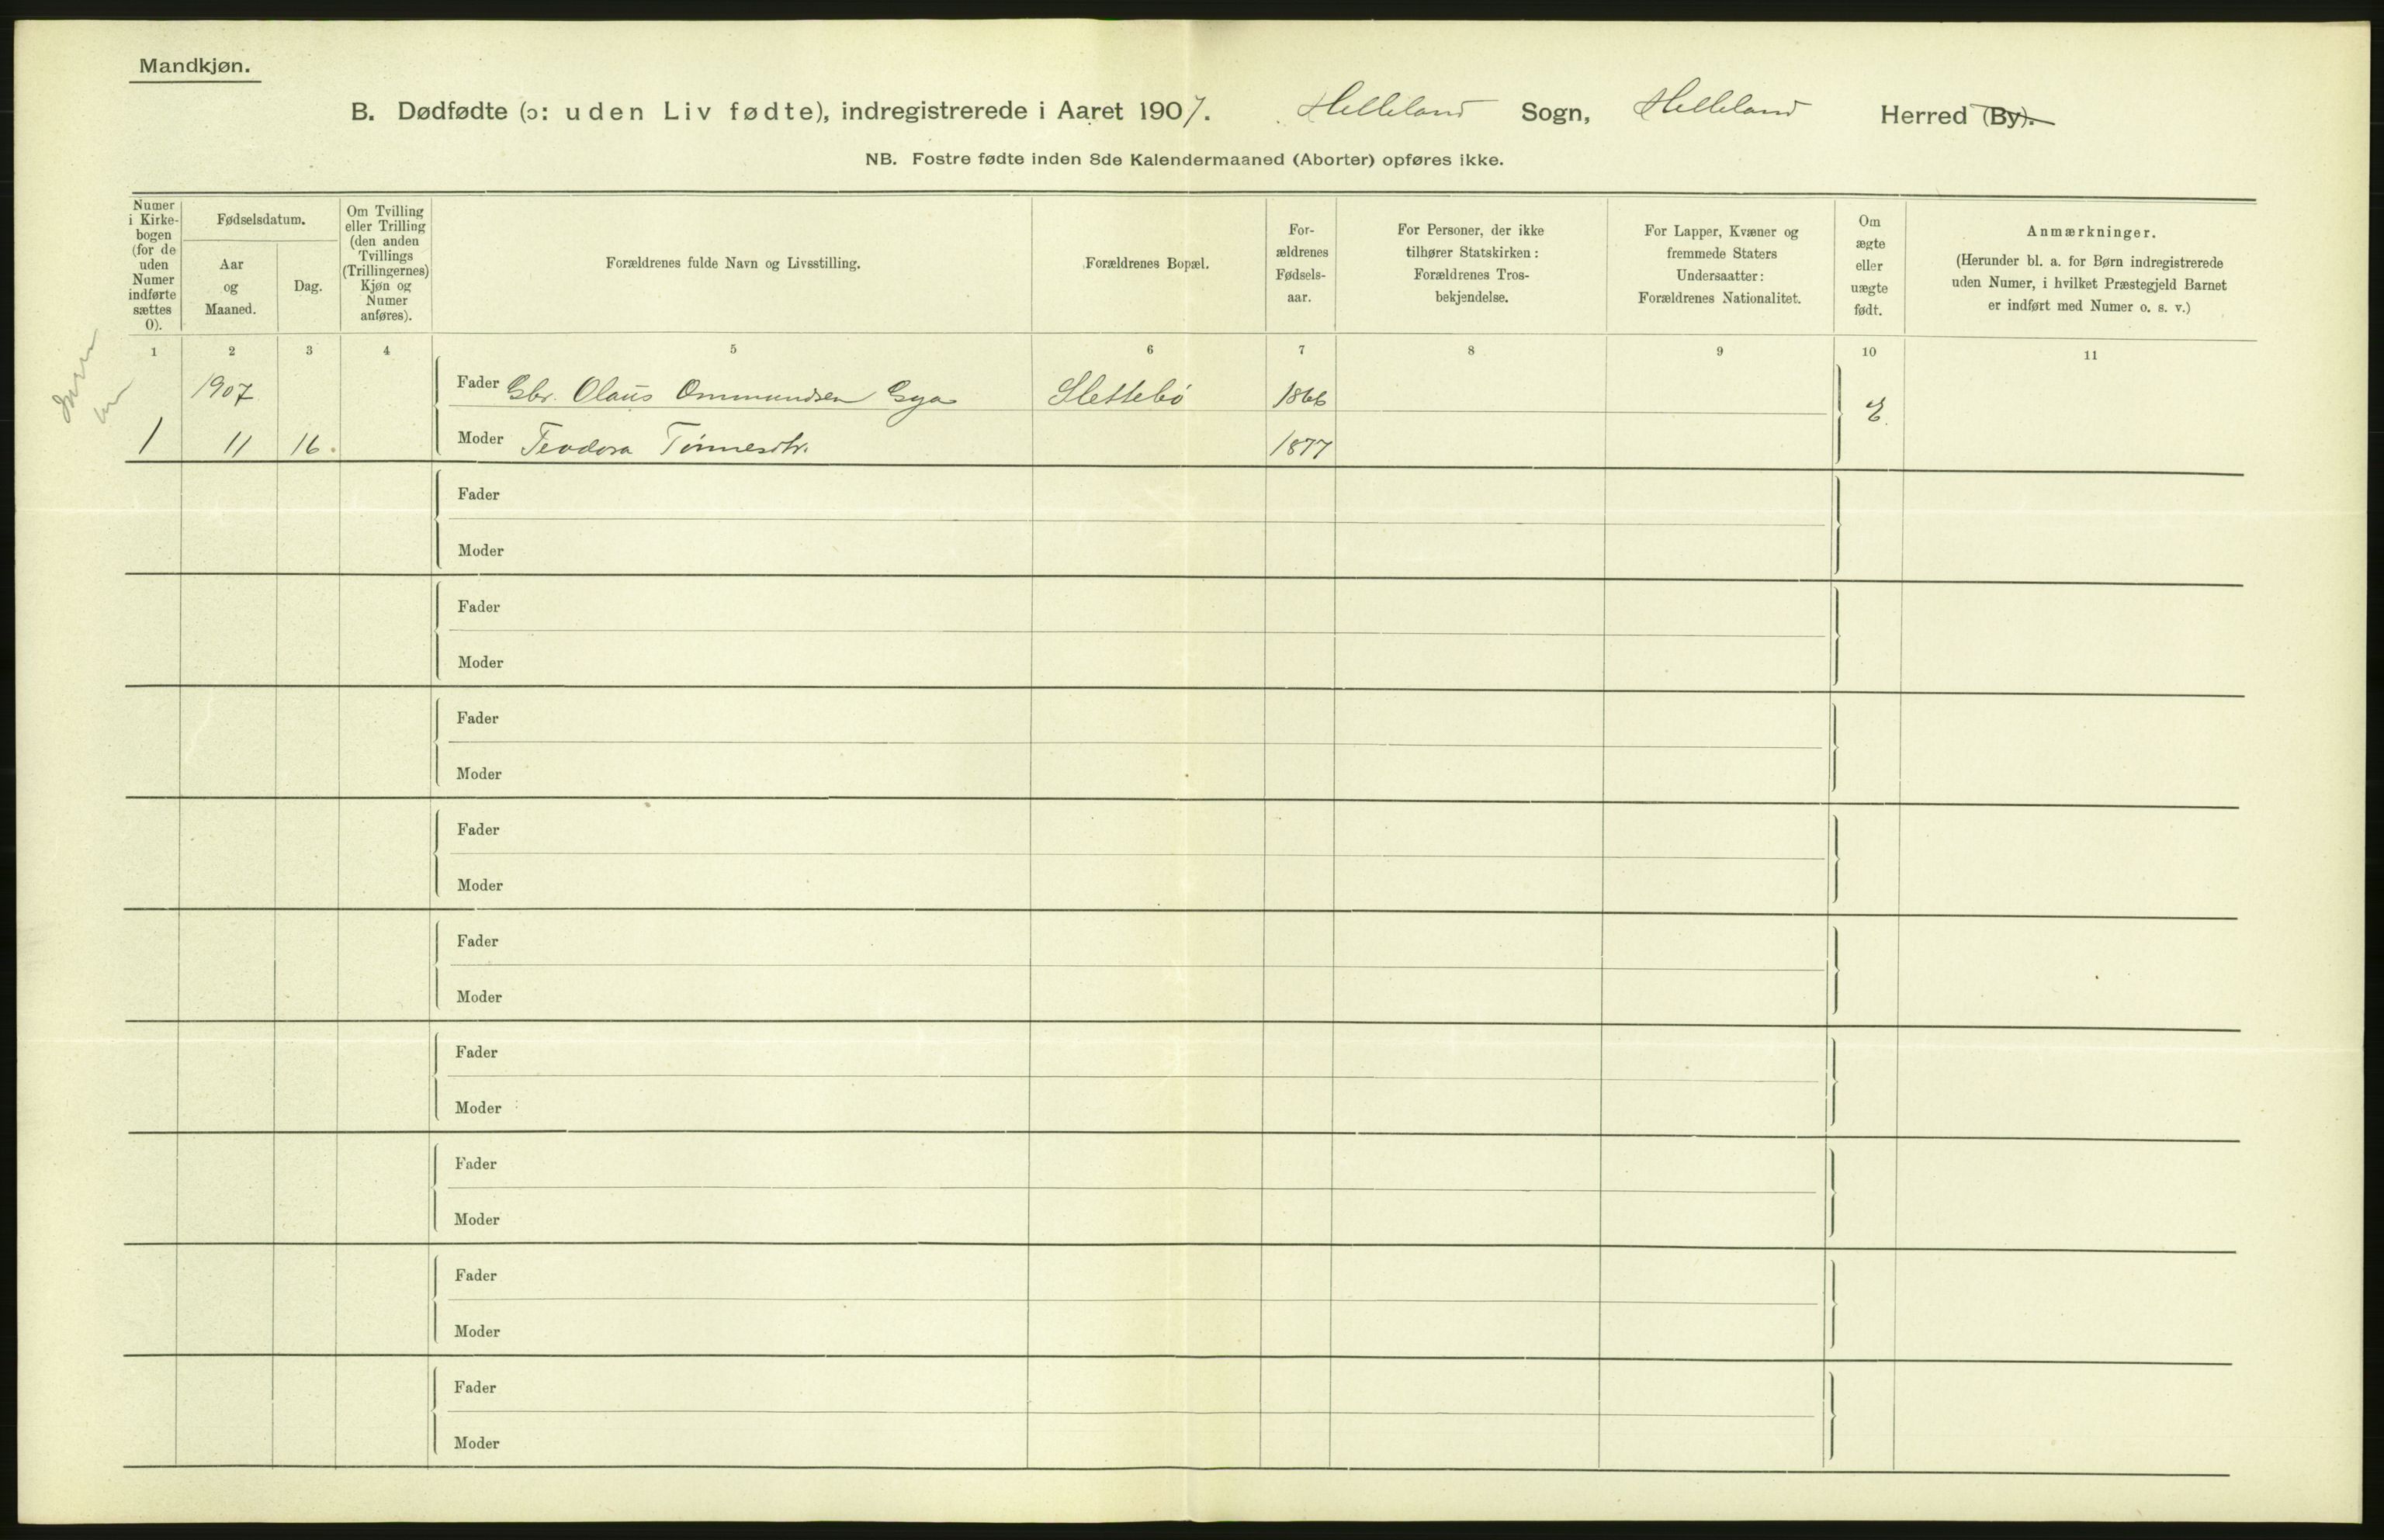 Mandkjøn.
B. Dødfødte (ɔ: uden Liv fødte), indregistrerede i Aaret 1907. Helleland Sogn, Helleland Herred (By).
NB. Fostre fødte inden 8de Kalendermaaned (Aborter) opføres ikke.
Numer i Kirke-bogen (for de uden Numer indførte sættes 0).
Fødselsdatum.
Aar og Maaned.
Dag.
Om Tvilling eller Trilling (den anden Tvillings (Trillingernes) Kjøn og Numer anføres).
Forældrenes fulde Navn og Livsstilling.
Forældrenes Bopæl.
For-ældrenes Fødsels-aar.
For Personer, der ikke tilhører Statskirken: Forældrenes Tros-bekjendelse.
For Lapper, Kvæner og fremmede Staters Undersaatter: Forældrenes Nationalitet.
Om ægte eller uægte født.
Anmærkninger.
(Herunder bl. a. for Børn indregistrerede uden Numer, i hvilket Præstegjeld Barnet er indført med Numer o. s. v.)
1 2 3 4 5 6 7 8 9 10 11
1907 Fader Gbr. Olaus Ommundsen Gya Slettebö 1866 E.
1 11 16. Moder Teodora Tönnesdtr. 1877
Fader
Moder
Fader
Moder
Fader
Moder
Fader
Moder
Fader
Moder
Fader
Moder
Fader
Moder
Fader
Moder
Fader
Moder